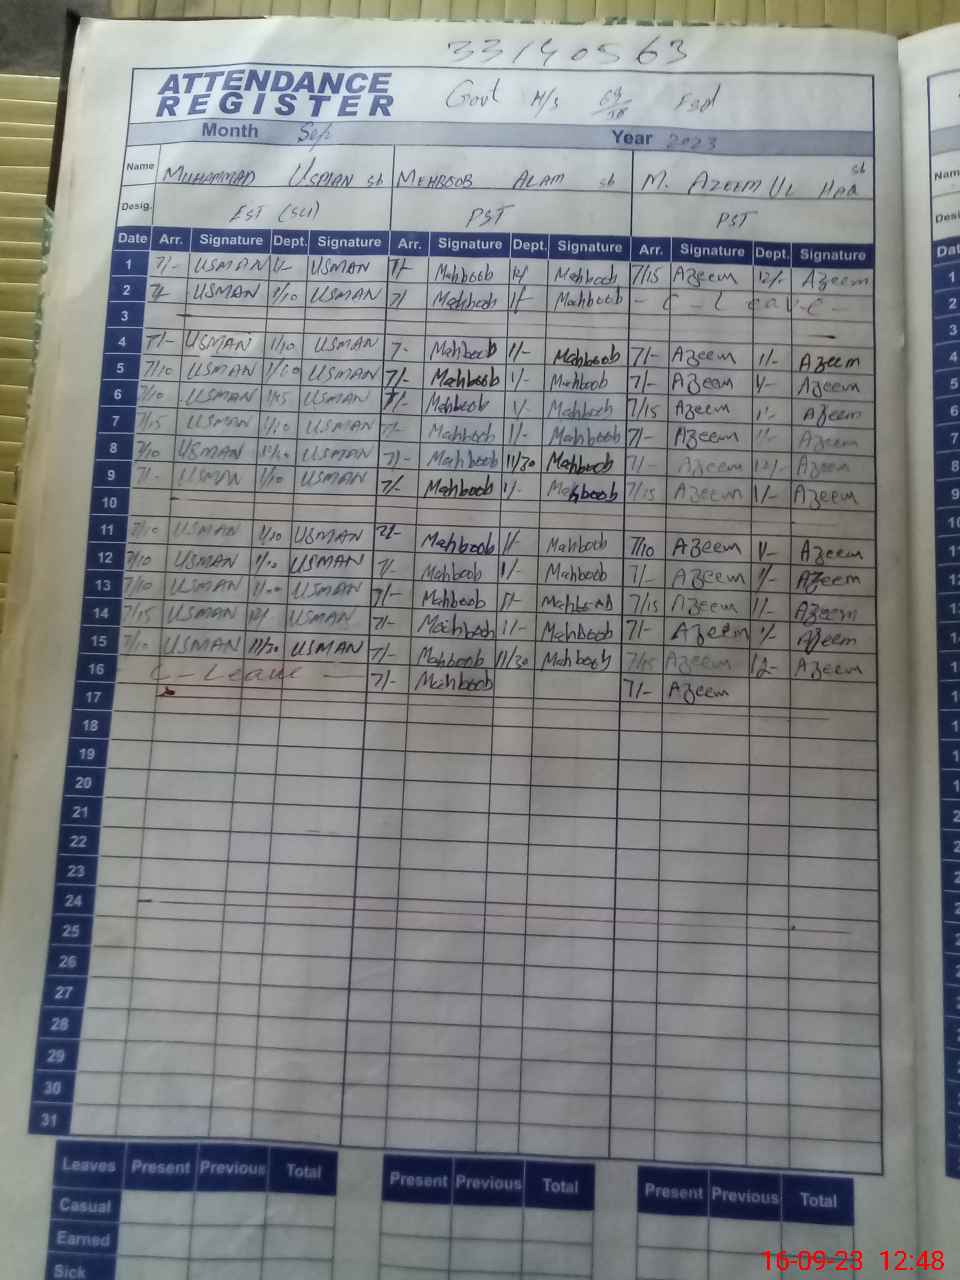 33140563
ATTENDANCE
REGISTER
Govt H/S Fsd
Month Sep Year 2023
Name MUHAMMAD USMAN sb MEHBOOB ALAM sb M. AZEEM UL HAQ sb
Desig. EST (SCI) PST PST
Date Arr. Signature Dept. Signature Arr. Signature Dept. Signature Arr. Signature Dept. Signature
1 7/- USMAN 1/- USMAN 7/- Mahboob Mahboob 7/15 Azeem 12/- Azeem
2 USMAN 1/10 USMAN 7/ Mahboob 1/- Mahboob - C - Leave -
3
4 7/- USMAN 1/10 USMAN 7- Mahboob 1/- Mahboob 7/- Azeem 1/- Azeem
5 7/10 USMAN 1/10 USMAN 7/- Mahboob 1/- Mahboob 7/- Azeem 1/- Azeem
6 7/10 USMAN 1/15 USMAN 7/- Mahboob 1/- Mahboob 7/15 Azeem 1/- Azeem
7 7/15 USMAN 1/10 USMAN 7/- Mahboob 1/- Mahboob 7/- Azeem 1/- Azeem
8 7/10 USMAN USMAN 7/- Mahboob 11/30 Mahboob 7/- Azeem 12/- Azeem
9 7/- USMAN 1/10 USMAN 7/- Mahboob 1/- Mahboob 7/15 Azeem 1/- Azeem
10
11 7/10 USMAN 1/10 USMAN 7/- Mahboob 1/- Mahboob 7/10 Azeem 1/- Azeem
12 7/10 USMAN 1/10 USMAN 7/- Mahboob 1/- Mahboob 7/- Azeem 1/- Azeem
13 7/10 USMAN USMAN 7/- Mahboob 1/- Mahboob 7/15 Azeem 1/- Azeem
14 7/15 USMAN USMAN 7/- Mahboob 1/- Mahboob 7/- Azeem 1/- Azeem
15 7/10 USMAN 11/30 USMAN 7/- Mahboob 11/30 Mahboob 7/15 Azeem 12- Azeem
16 C - Leave - 7/- Mahboob 7/- Azeem
17
18
19
20
21
22
23
24
25
26
27
28
29
30
31
Leaves Present Previous Total Present Previous Total Present Previous Total
Casual
Earned
Sick
16-09-23 12:48